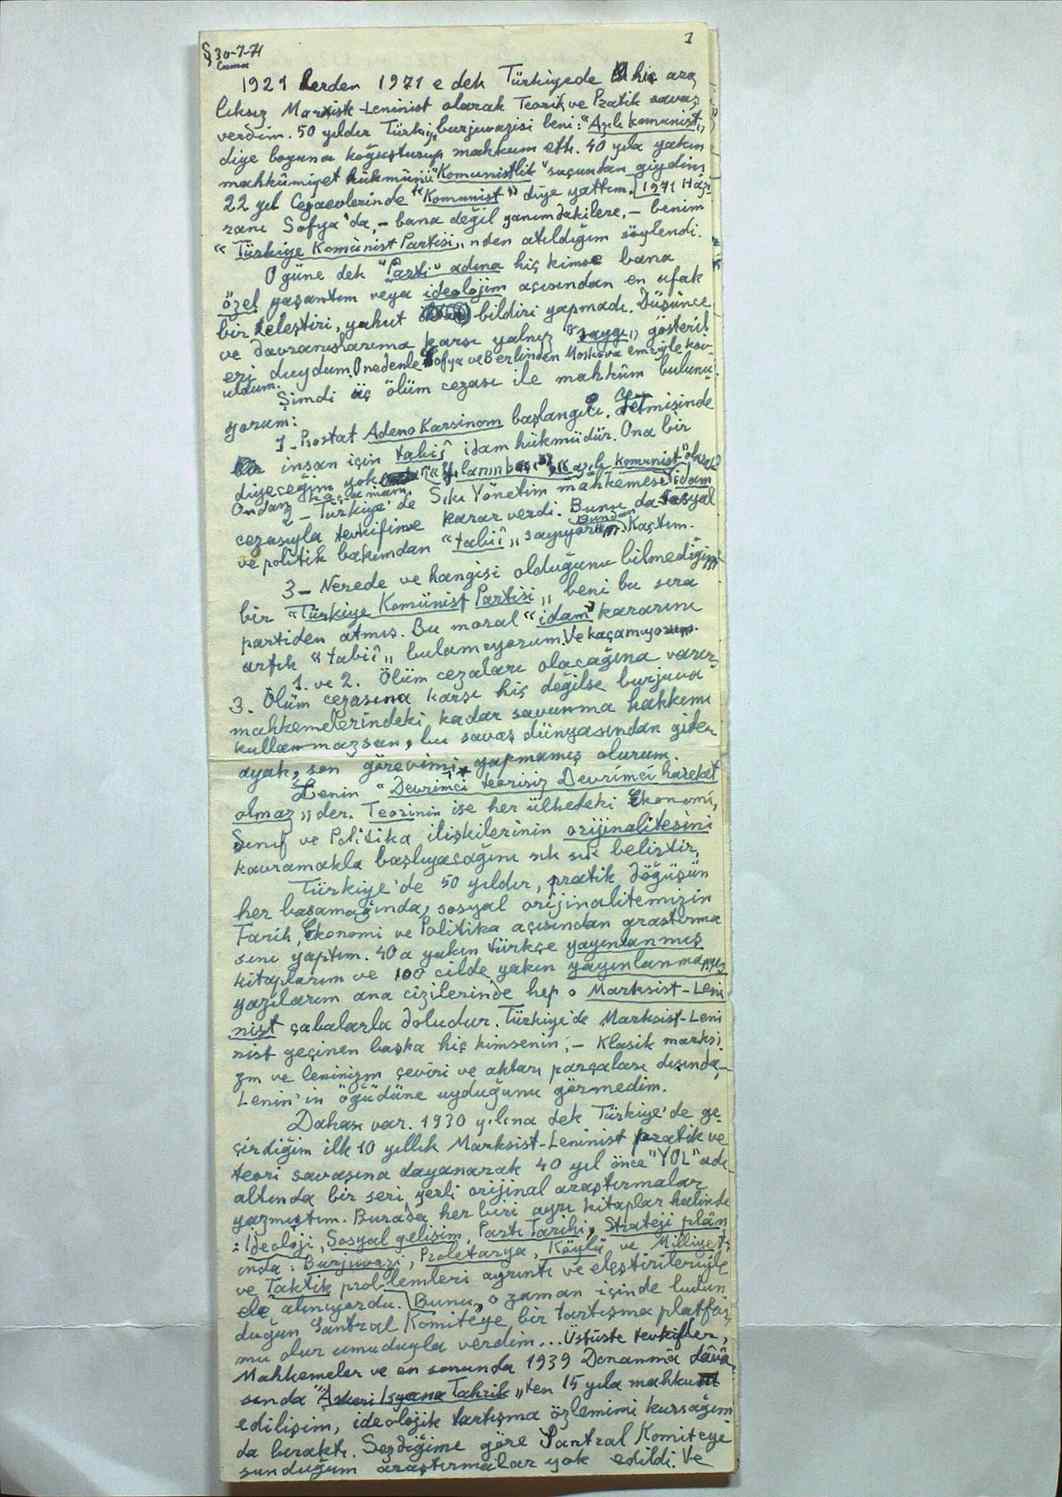 1
30-7-71
Cuma
1921 lerden 1971 e dek Türkiyede hiç ara
lıksız Marksist-Leninist olarak Teorik ve Pratik savaş
verdim. 50 yıldır Türkiye burjuvazisi beni: "Azılı komünist"
diye boyuna koğuşturup mahkum etti. 40 yıla yakın
mahkûmiyet hükmünü "Komunistlik" suçundan giydim
22 yıl Cezaevlerinde "Komunist" diye yattım. 1971 Hazi
ranı Sofya'da,- bana değil yanımdakilere,- benim
"Türkiye Komünist Partisi" nden atıldığım söylendi.
O güne dek "Parti" adına hiç kimse bana
özel yaşantım veya ideolojim açısından en ufak
bir eleştiri, yahut bildiri yapmadı. Düşünce
ve davranışlarıma karşı yalnız "saygı" gösteril
diğini duydum. O nedenle Sofya ve Berlinden Moskova emriyle kov
uldum.
Şimdi üç ölüm cezası ile mahkûm bulunu
yorum:
1- Prostat Adeno Karsinom başlangıcı. Yetmişinde
bir insan için tabiî idam hükmüdür. Ona bir
diyeceğim yok. "azılı komunist" olarak
Ondan kaçamam.
2- Türkiye'de Sıkı Yönetim mahkemesi idam
cezasıyla tevkifime karar verdi. Bunu da sosyal
ve politik bakımdan "tabiî" sayıyorum. Bundan Kaçtım.
3- Nerede ve hangisi olduğunu bilmediğim
bir "Türkiye Komünist Partisi" beni bu sıra
partiden atmış. Bu moral "idam" kararını
artık "tabiî" bulamıyorum. Ve kaçamıyorum.
1. ve 2. Ölüm cezaları olacağına varır.
3. Ölüm cezasına karşı hiç değilse burjuva
mahkemelerindeki kadar savunma hakkımı
kullanmazsam, bu savaş dünyasından gider
ayak, son görevimi yapmamış olurum.
Lenin "Devrimci teorisiz Devrimci hareket
olmaz" der. Teorinin ise her ülkedeki Ekonomi,
Sınıf ve Politika ilişkilerinin orijinalitesini
kavramakla başlıyacağını sık sık belirtir.
Türkiye'de 50 yıldır, pratik döğüşün
her basamağında, sosyal orijinalitemizin
Tarih, Ekonomi ve Politika açısından araştırma
sını yaptım. 40 a yakın türkçe yayınlanmış
kitaplarım ve 100 cilde yakın yayınlanmamış
yazılarım ana çizilerinde hep o Marksist-Leni
nist çabalarla doludur. Türkiye'de Marksist-Leni
nist geçinen başka hiç kimsenin,- Klasik marksi
zm ve leninizm çeviri ve aktarı parçaları dışında,-
Lenin'in öğüdüne uyduğunu görmedim.
Dahası var. 1930 yılına dek Türkiye'de ge
çirdiğim ilk 10 yıllık Marksist-Leninist pratik ve
teori savaşına dayanarak 40 yıl önce "YOL" adı
altında bir seri yerli orijinal araştırmalar
yazmıştım. Burada her biri ayrı kitaplar halinde
: İdeoloji, Sosyal gelişim, Parti Tarihi, Strateji plân
ında: Burjuvazi, Proletarya, Köylü ve Milliyet
ve Taktik problemleri ayrıntı ve eleştirileriyle
ele alınıyordu. Bunu, o zaman içinde bulun
duğum Santral Komiteye bir tartışma platfor
mu olur umuduyla verdim... Üstüste tevkifler,
Mahkemeler ve en sonunda 1939 Donanma dâvâ
sında "Askeri İsyana Tahrik" ten 15 yıla mahkum
edilişim, ideolojik tartışma özlemimi kursağım
da bıraktı. Sezdiğime göre Santral Komiteye
sunduğum araştırmalar yok edildi. Ve